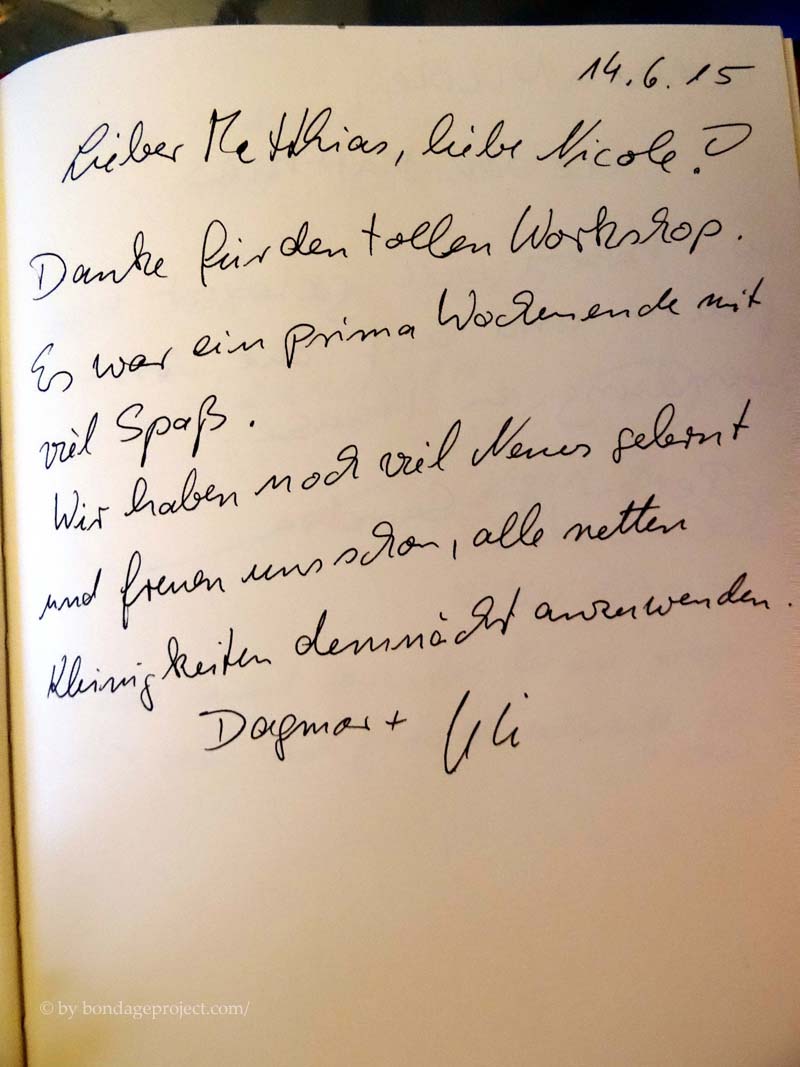 14.6.15
Lieber Matthias, liebe Nicole!
Danke für den tollen Workshop.
Es war ein prima Wochenende mit
viel Spaß.
Wir haben noch viel Neues gelernt
und freuen uns schon, alle netten
Kleinigkeiten demnächst anzuwenden.
Dagmar + Uli
© by bondageproject.com/